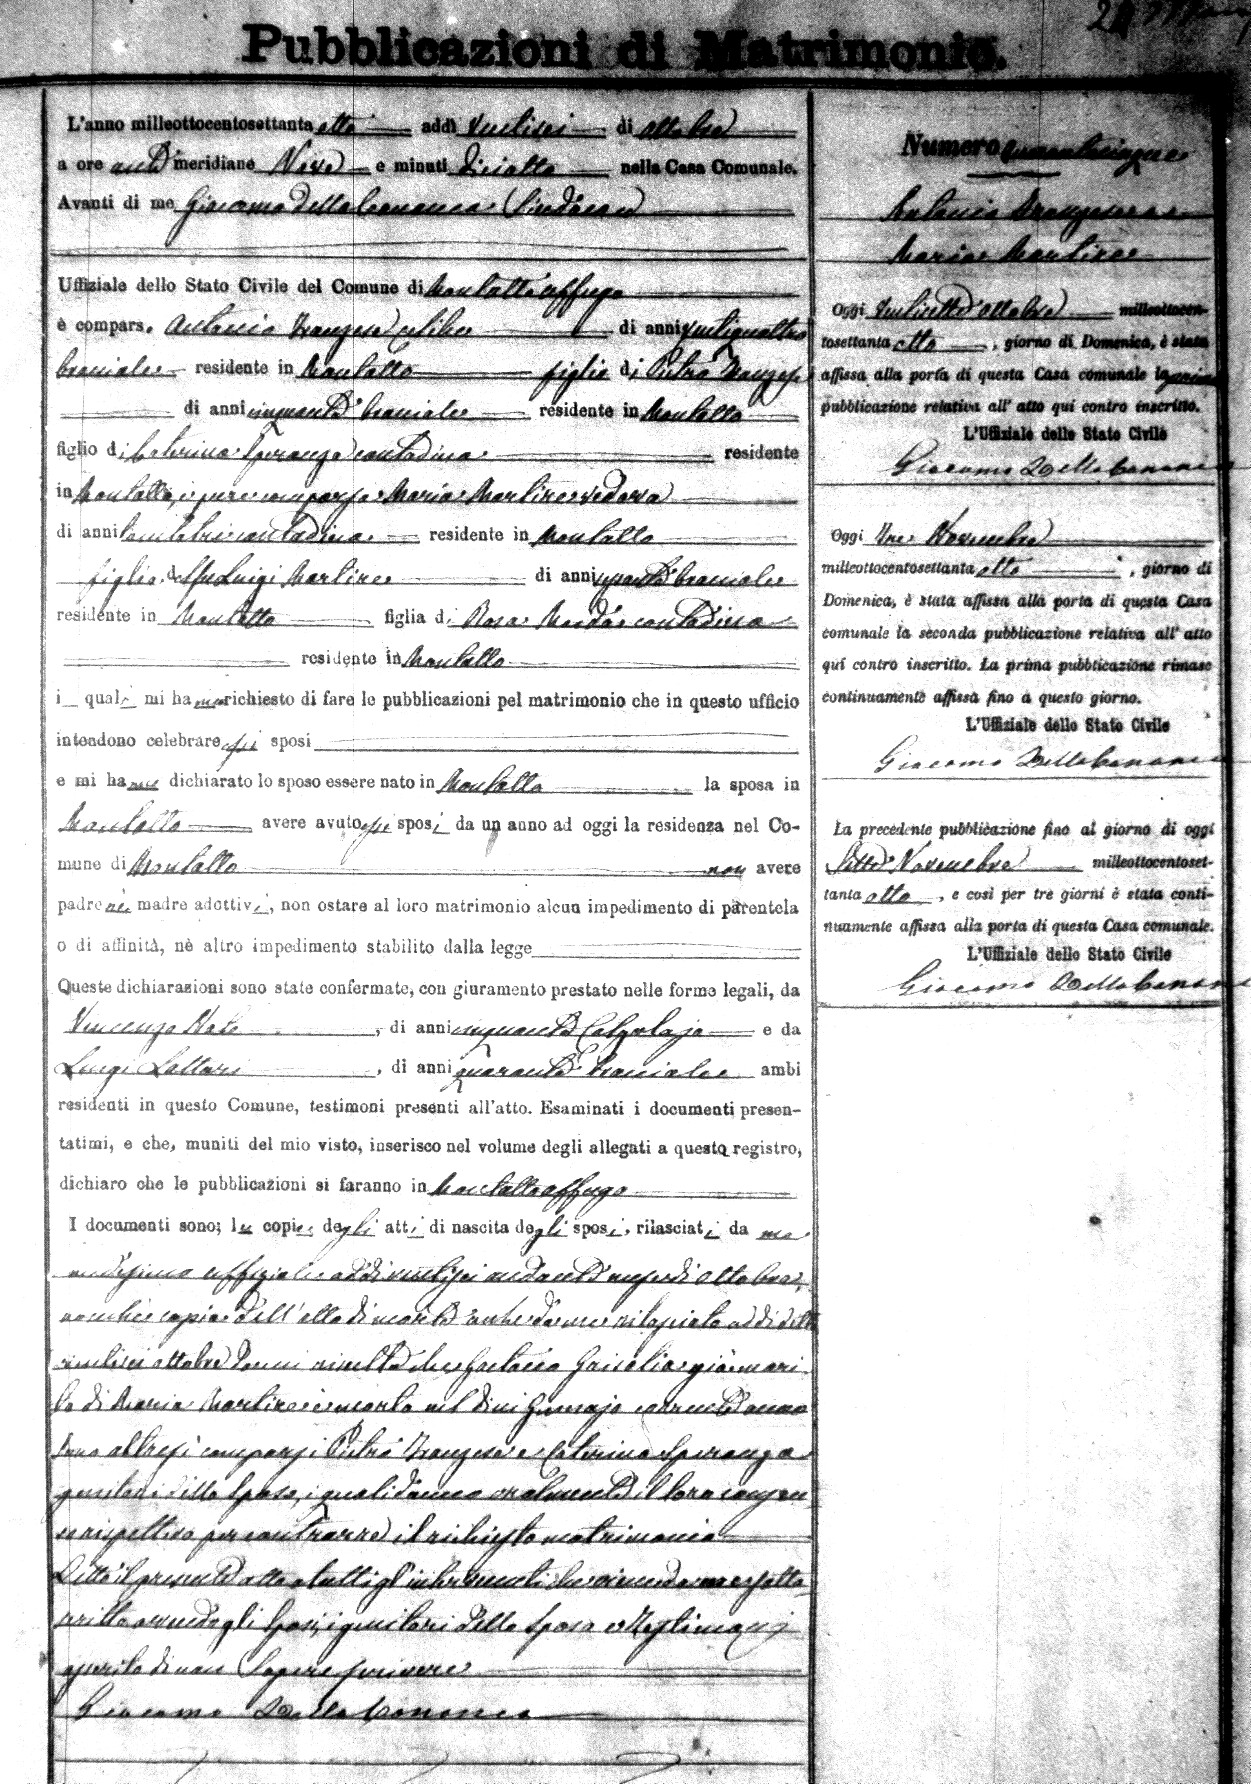 Pubblicazioni di Matrimonio.
L'anno milleottocentosettanta otto addì ventisei di ottobre
a ore anti meridiane Nove e minuti diciotto nella Casa Comunale.
Avanti di me Giacomo Della Cananea Sindaco
Uffiziale dello Stato Civile del Comune di Montalto Uffugo
è compars. Antonio Franzese celibe di anni ventiquattro
bracciale residente in Montalto figlio di Pietro Franzese
di anni cinquanta bracciale residente in Montalto
figlio di Caterina Speranza contadina residente
in Montalto, è pure comparsa Maria Martire vedova
di anni contadina residente in Montalto
figlia del fu Luigi Martire di anni bracciale
residente in Montalto figlia di Rosa contadina
residente in Montalto
i quali mi hanno richiesto di fare le pubblicazioni pel matrimonio che in questo ufficio
intendono celebrare essi sposi
e mi hanno dichiarato lo sposo essere nato in Montalto la sposa in
Montalto avere avuto essi sposi da un anno ad oggi la residenza nel Co-
mune di Montalto non avere
padre nè madre adottivi, non ostare al loro matrimonio alcun impedimento di parentela
o di affinità, nè altro impedimento stabilito dalla legge
Queste dichiarazioni sono state confermate, con giuramento prestato nelle forme legali, da
Vincenzo , di anni cinquanta Calzolajo e da
Luigi Lattari , di anni quaranta bracciale ambi
residenti in questo Comune, testimoni presenti all'atto. Esaminati i documenti presen-
tatimi, e che, muniti del mio visto, inserisco nel volume degli allegati a questo registro,
dichiaro che le pubblicazioni si faranno in Montalto Uffugo
I documenti sono; le copie degli atti di nascita degli sposi, rilasciati da me
medesimo uffiziale addì ventisei andante mese di Ottobre,
nonchè copia dell'atto di morte anche da me rilasciato addì detto
ventisei ottobre d'onde risulta che Gaetano già mari
to di Maria Martire è morto nel dì corrente anno
Sono altresì comparsi Pietro Franzese e Caterina Speranza
genitori dello sposo, i quali danno oralmente il loro consen
so rispettivo per contrarre il richiesto matrimonio
Letto il presente atto a tutti gl'intervenuti che viene da me sotto
scritto avendo gli sposi, i genitori dello sposo e i testimonj
asserito di non sapere scrivere
Giacomo Della Cananea
Numero quarantacinque
Antonio Franzese
Maria Martire
Oggi Ventisette ottobre milleottocen-
tosettanta otto, giorno di Domenica, è stata
affissa alla porta di questa Casa comunale la prima
pubblicazione relativa all' atto qui contro inscritto.
L'Uffiziale dello Stato Civile
Giacomo Della Cananea
Oggi tre Novembre
milleottocentosettanta otto, giorno di
Domenica, è stata affissa alla porta di questa Casa
comunale la seconda pubblicazione relativa all' atto
qui contro inscritto. La prima pubblicazione rimase
continuamente affissa fino a questo giorno.
L'Uffiziale dello Stato Civile
Giacomo Della Cananea
La precedente pubblicazione fino al giorno di oggi
Sette Novembre milleottocentoset-
tanta otto, e così per tre giorni è stata conti-
nuamente affissa alla porta di questa Casa comunale.
L'Uffiziale dello Stato Civile
Giacomo Della Cananea